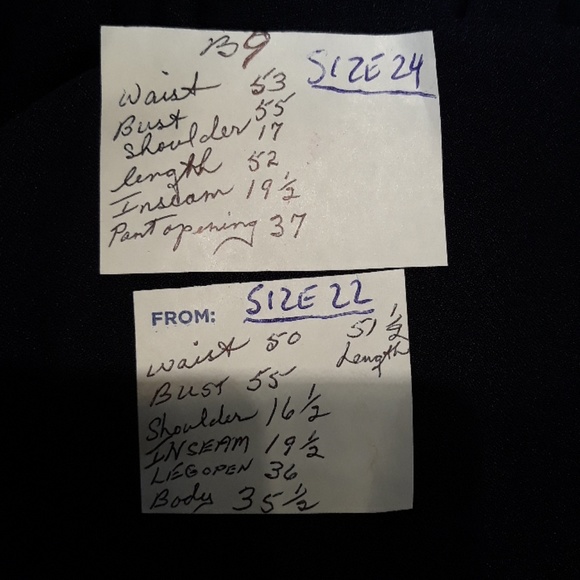 B9
SIZE 24
Waist 53
Bust 55
Shoulder 17
length 52
Inseam 19 1/2
Pant opening 37
FROM: SIZE 22
Waist 50
51 1/2
Length
BUST 55
Shoulder 16 1/2
INSEAM 19 1/2
LEG OPEN 36
Body 35 1/2